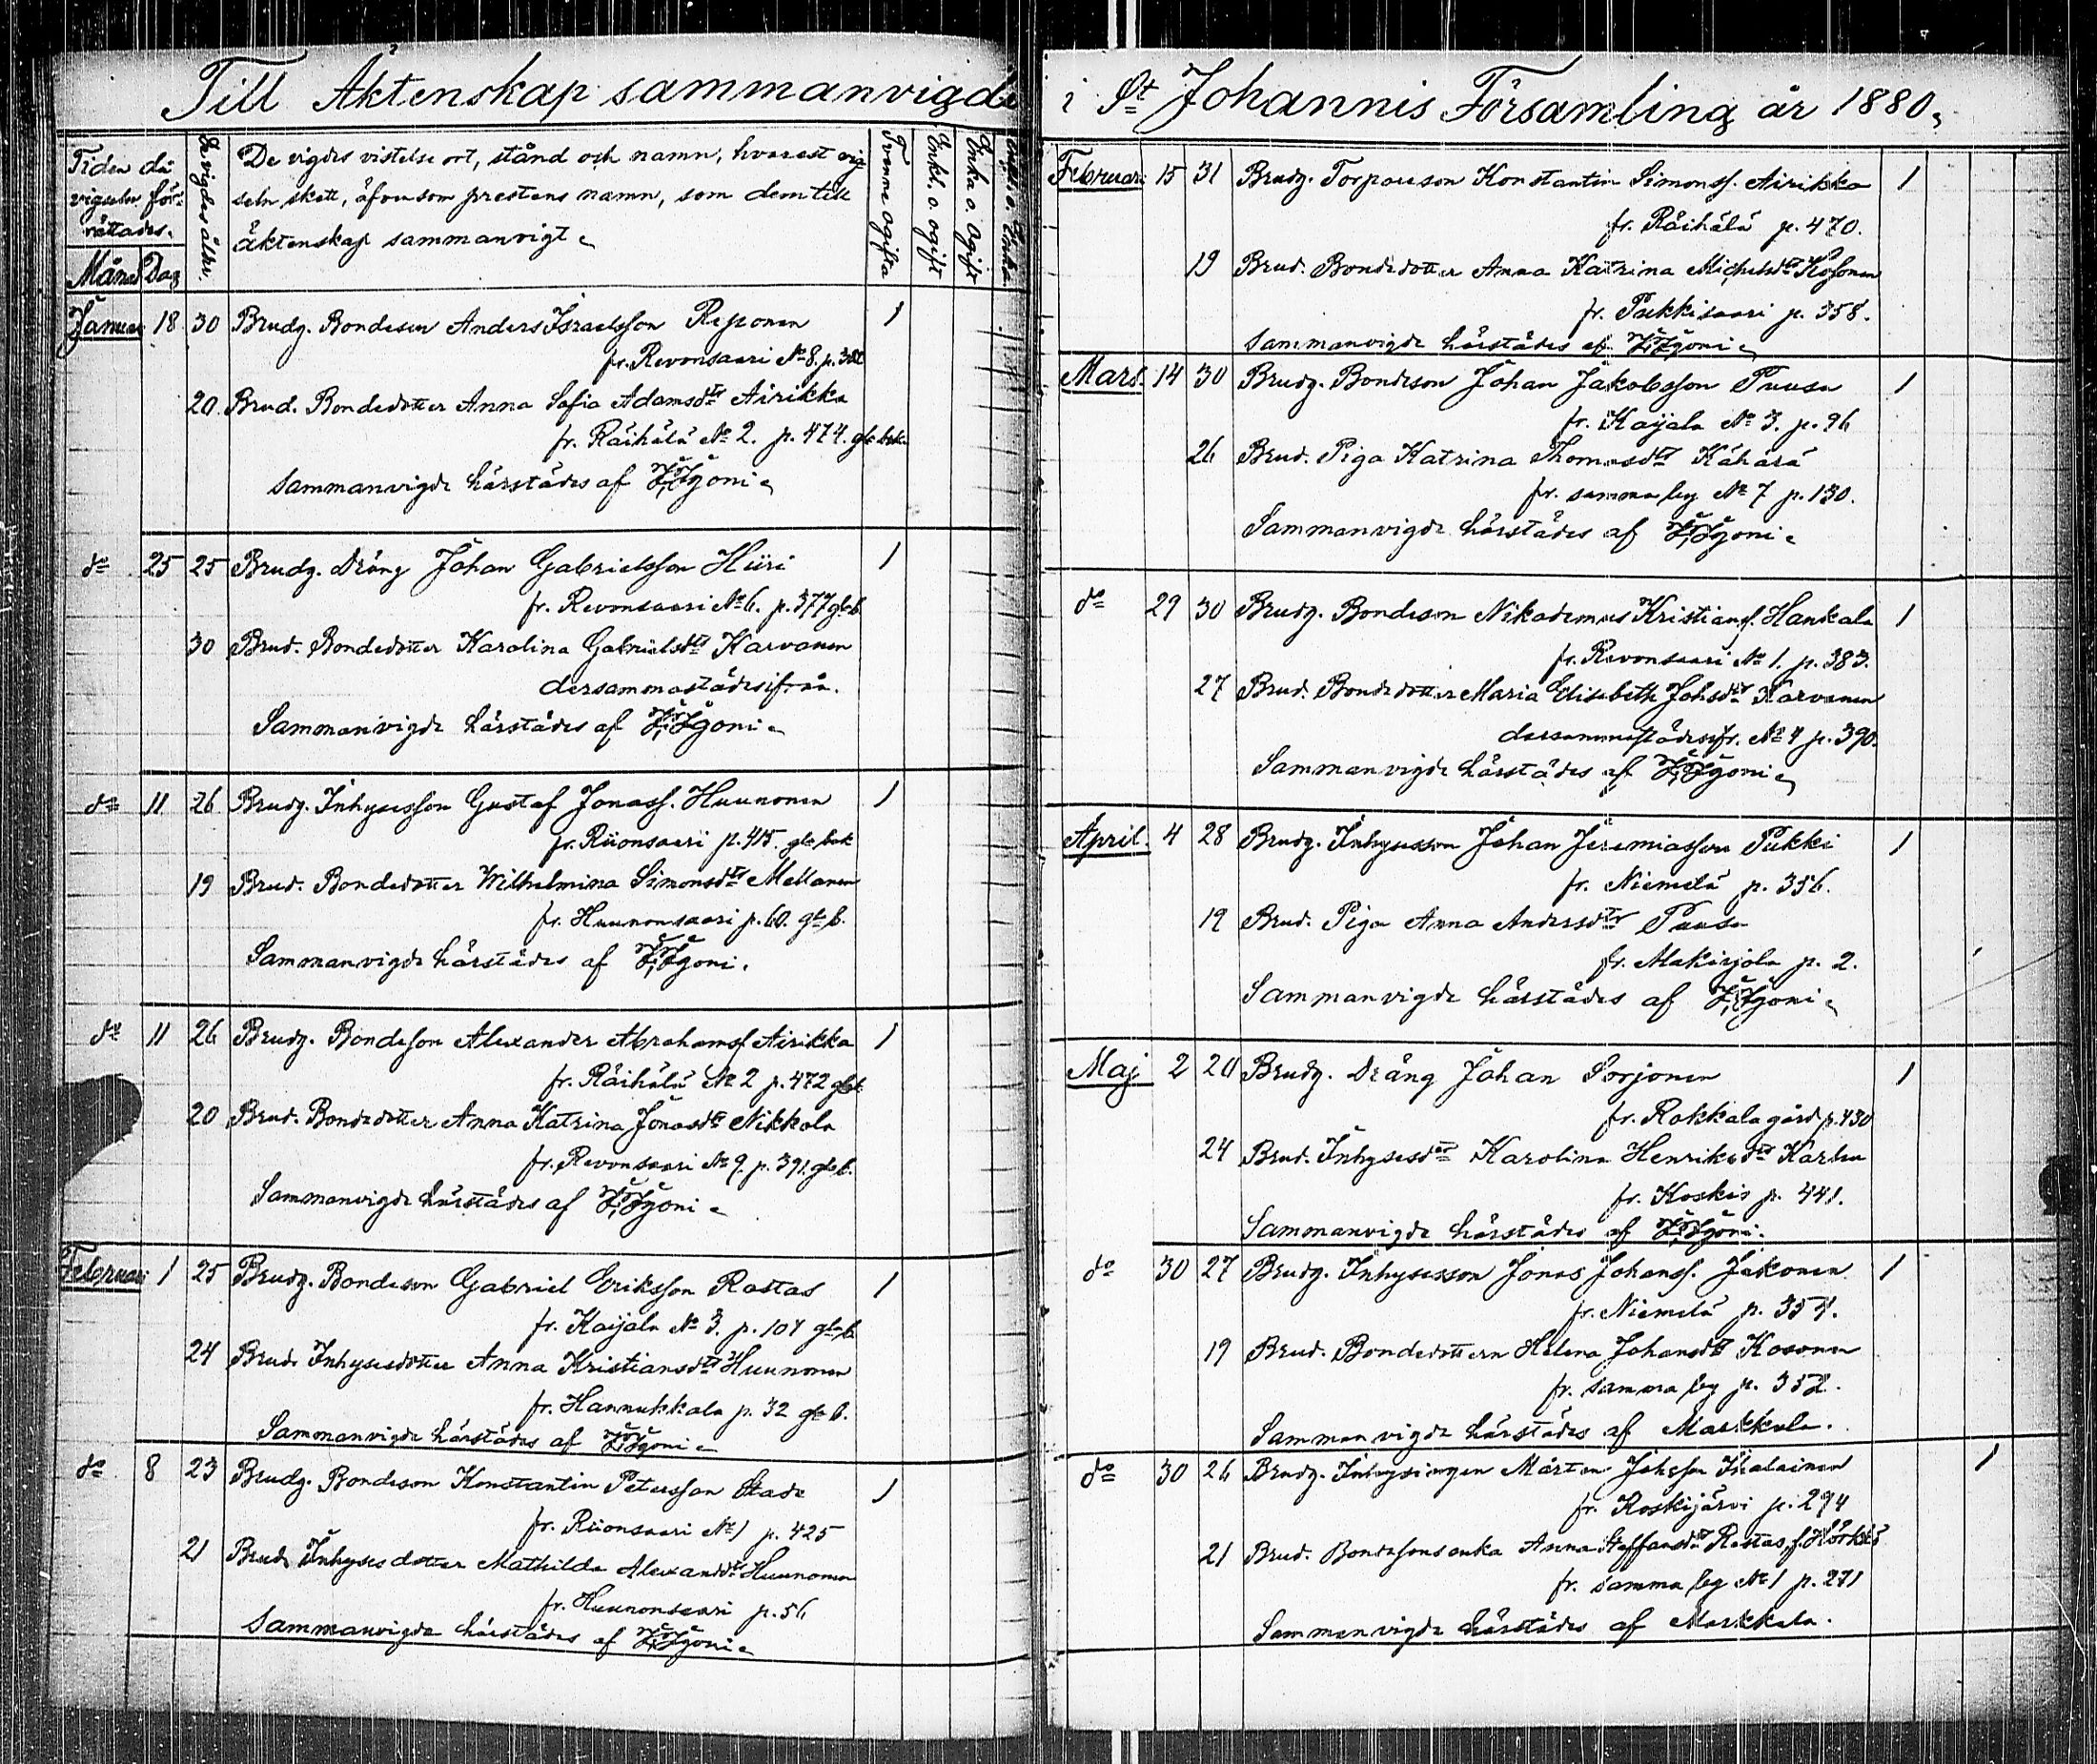 Till Äktenskap sammanvigde
Tiden då vigseln förrättades.
Månad Dag
De vigdes ålder.
De vigdes vistelse ort, stånd och namn, hvarest vig
seln skett, äfvensom prestens namn, som dem till
äktenskap sammanvigt.
Tvenne ogifta
Enkl. o. ogift
Enka o. Ogift
Januari 18 30 Brudg. Bondeson Anders Israelsson Reponen 1
fr. Revonsaari No 8. p.
20 Brud. Bondedotter Anna Sofia Adamsdtr Airikka
fr. Räihälä No 2. p. 474. gla bok
Sammanvigde härstädes af
do 25 25 Brudg. Dräng Johan Gabrielsson Hiiri 1
fr. Revonsaari No 6. p. 377 gla b.
30 Brud. Bondedotter Karolina Gabrielsdtr Karvanen
dersammastädesifrån.
Sammanvigde härstädes af
do 11 26 Brudg. Inhysesson Gustaf Jonass. Huunonen 1
fr. Riionsaari p. 415. gla bok
19 Brud. Bondedotter Wilhelmina Simonsdtr Mellanen
fr. Huunonsaari p. 60. gla b.
Sammanvigde härstädes af
do 11 26 Brudg. Bondeson Alexander Abrahamss. Airikka 1
fr. Räihälä No 2 p. 472 gla b.
20 Brud. Bondedotter Anna Katrina Jonasdtr Nikkola
fr. Revonsaari No 9. p. 391. gla b.
Sammanvigde härstädes af
Februari 1 25 Brudg. Bondeson Gabriel Eriksson Rastas 1
fr. Kaijala No 3. p. 104 gla b.
24 Brud. Inhysesdotter Anna Kristiansdtr Huunonen
fr. Hannukkala p. 32 gla b.
Sammanvigde härstädes af
do 8 23 Brudg. Bondeson Konstantin Petersson Stade 1
fr. Riionsaari No 1 p. 425
21 Brud. Inhysesdotter Mathilda Alexandsdtr Huunonen
fr. Huunonsaari p. 56
Sammanvigde härstädes af
i St Johannis Församling år 1880.
Februari 15 31 Brudg. Torpareson Konstantin Simonss. Airikka 1
fr. Räihälä p. 470.
19 Brud. Bondedotter Anna Katrina Michelsdtr Kosonen
fr. Pukkisaari p. 358.
Sammanvigde härstädes af
Mars. 14 30 Brudg. Bondeson Johan Jakobsson Puusa 1
fr. Kaijala No 3. p. 96
26 Brud. Piga Katrina Thomasdtr Kähärä
fr. samma by No 7 p. 130.
Sammanvigde härstädes af
do 29 30 Brudg. Bondeson Nikademus Kristianss. Hankala 1
fr. Revonsaari No 1. p. 383.
27 Brud. Bondedotter Maria Elisabeth Johsdtr Karvanen
dersammastädesifr. No 4 p. 390.
Sammanvigde härstädes af
April. 4 28 Brudg. Inhysesson Johan Jeremiasson Pukki 1
fr. Niemelä p. 356.
19 Brud. Piga Anna Andersdtr Puusa
fr. Makirjola p. 2.
Sammanvigde härstädes af
Maj 2 20 Brudg. Dräng Johan Sorjonen 1
fr. Rokkala gård p. 430
24 Brud. Inhysesdtr Karolina Henriksdtr Karhu
fr. Koskis p. 441.
Sammanvigde härstädes af
do 30 27 Brudg. Inhysesson Jonas Johanss. Jakonen 1
fr. Niemelä p. 354.
19 Brud. Bondedottern Helena Johansdtr Kosonen
fr. samma by p. 352.
Sammanvigde härstädes af Markkula.
do 30 26 Brudg. Inhysingen Mårten Johsson Ihalainen 1
fr. Koskijärvi p. 294
21 Brud. Bondesonsenka Anna Staffansdtr Rastas, f.
fr. samma by No 1 p. 271
Sammanvigde härstädes af Markkula.